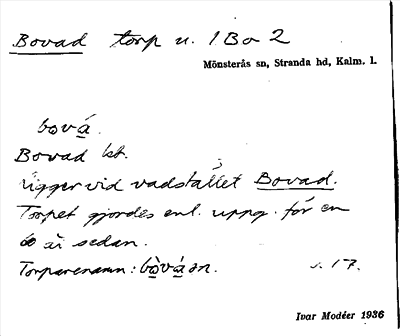 Bovad torp u. 1 Bo 2
Mönsterås sn, Stranda hd, Kalm. l.
bo̱vá̱.
Bovad kt.
Ligger vid vadstället Bovad.
Torpet gjordes enl. uppg. för en
60 år sedan.
Torparenamn: bò̱vá̱ən. s. 17.
Ivar Modéer 1936